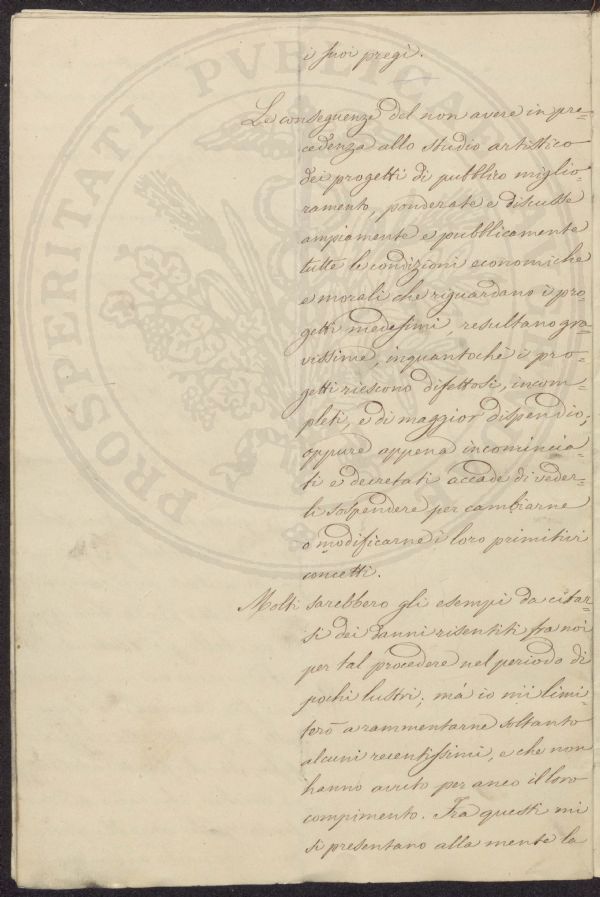 i suoi pregi.
Le conseguenze del non avere in pre=
cedenza allo studio artistico
dei progetti di pubblico miglio=
ramento, ponderate e discusse
ampiamente e pubblicamente
tutte le condizioni economiche
e morali che riguardano i pro=
getti medesimi, resultano gra=
vissime, inquantochè i pro=
getti riescono difettosi, incom=
pleti, e di maggior dispendio;
oppure appena incomincia=
ti e decretati accade di veder=
li sospendere per cambiarne
o modificarne i loro primitivi
concetti.
Molti sarebbero gli esempi da citar=
si dei danni risentiti fra noi
per tal procedere nel periodo di
pochi lustri; má io mi limi=
terò a rammentarne soltanto
alcuni recentissimi, e che non
hanno avuto per anco il loro
compimento. Fra questi mi
si presentano alla mente la
PROSPERITATI PVBLICAE